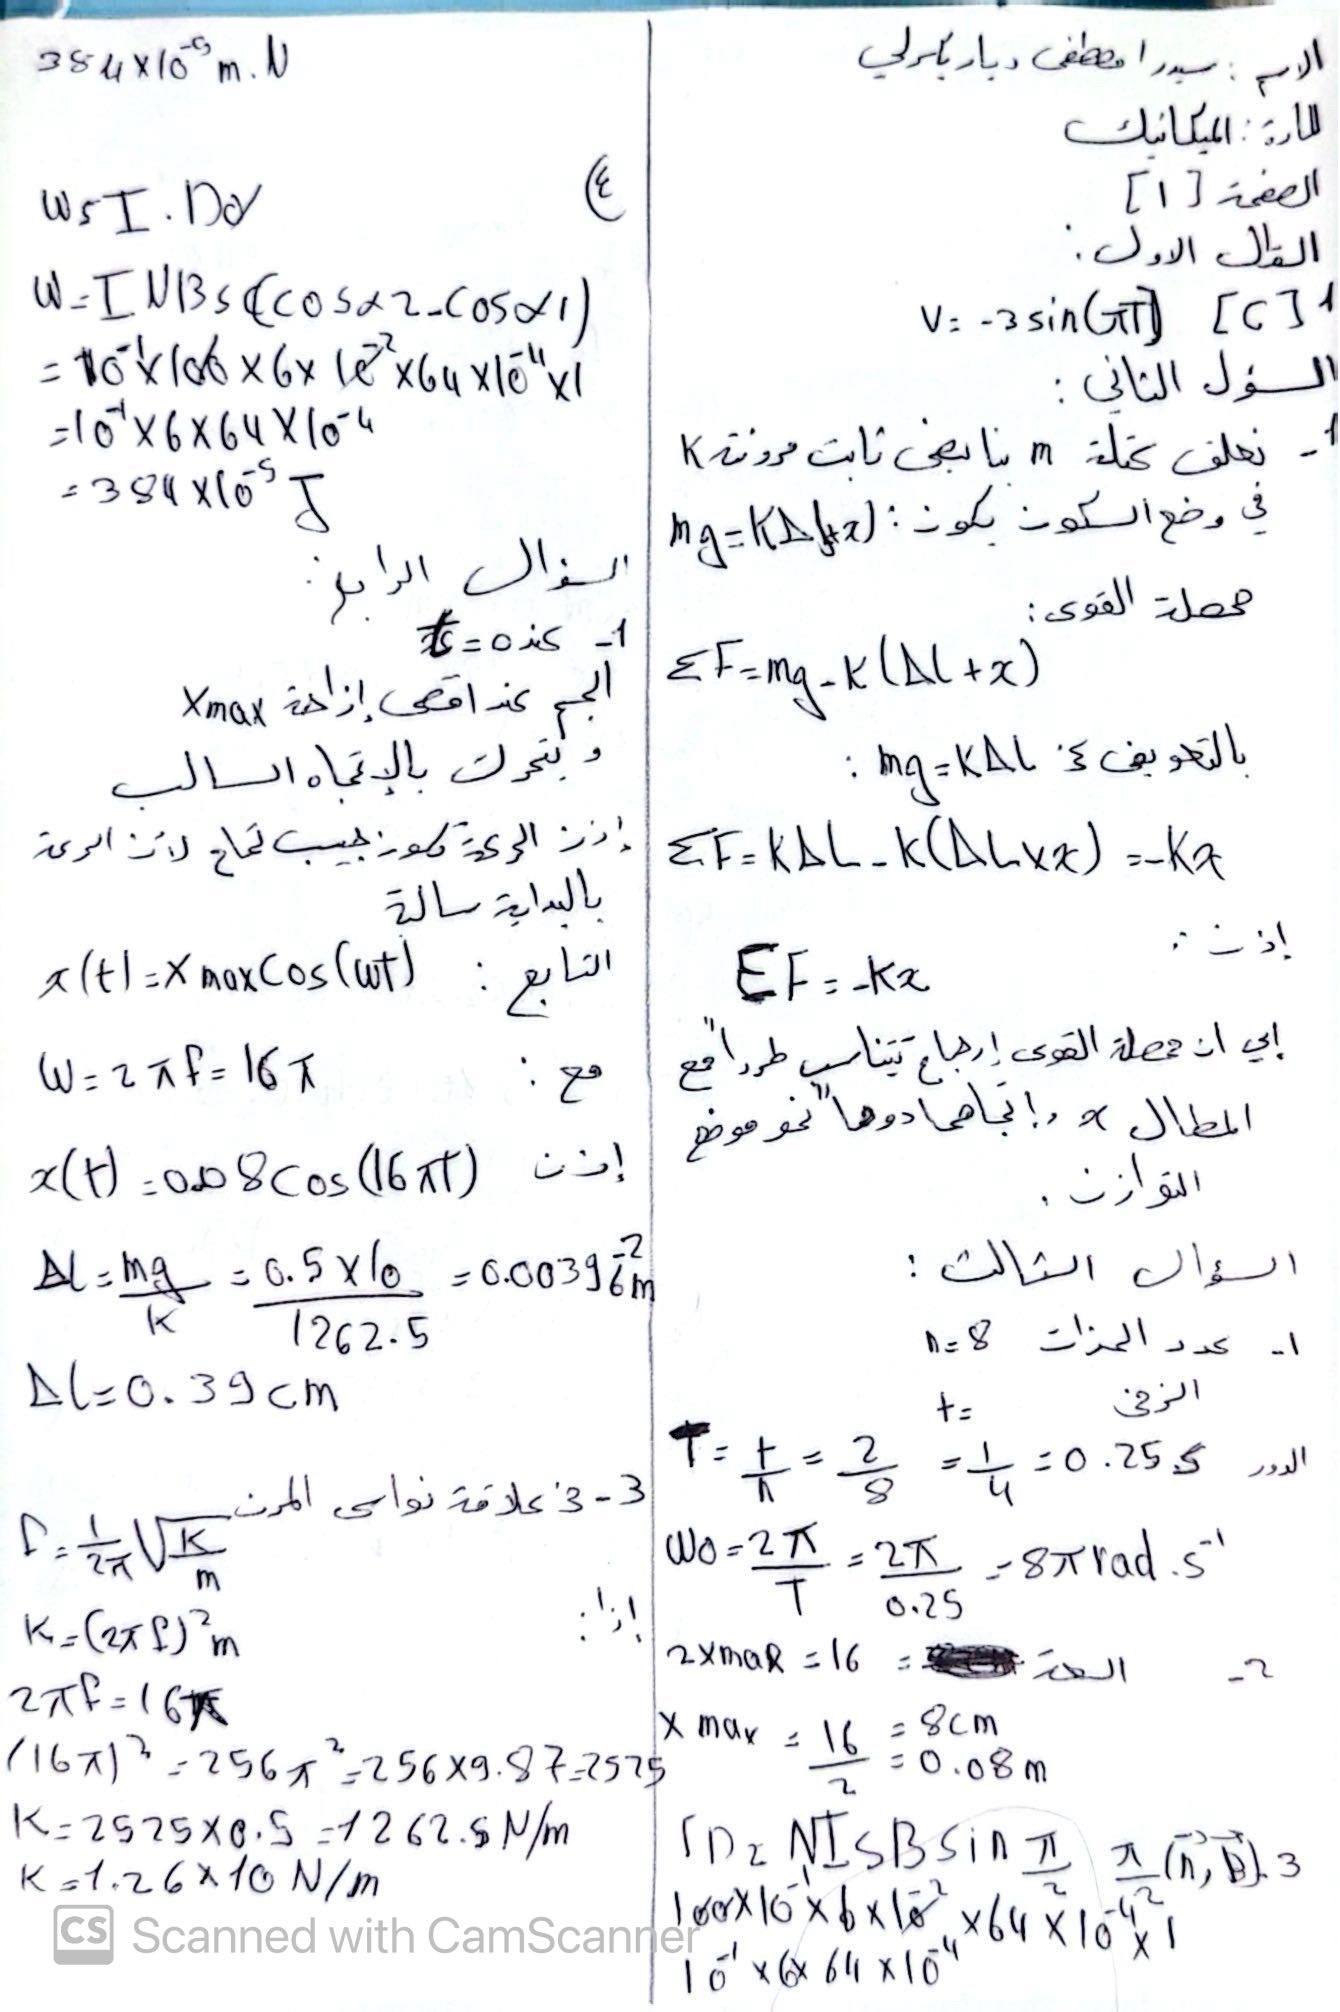 الاسم: سيدرا مصطفى ديار بكرلي
المادة: الميكانيك
الصفحة [1]
السؤال الاول:
1 [C] V= -3 sin(πT)
السؤل الثاني:
1- نعلق كتلة m بنابض ثابت مرونته K
في وضع السكون يكون: mg=K(Δl+x)
محصلة القوى:
ΣF=mg-K(Δl+x)
بالتعويض mg=KΔl :
ΣF=KΔL-K(ΔL+x) =-Kx
إذن:
ΣF=-Kx
إي ان محصلة القوى إرجاع تتناسب طرداً مع
المطال x وإتجاهها دوماً نحو موضع
التوازن.
السؤال الثالث:
1- عدد الهزات n=8
الزمن t=
الدور T= t/n = 2/8 = 1/4 = 0.25 s
ω0=2π/T = 2π/0.25 = 8π rad.s⁻¹
2- السعة = 2xmax = 16
xmax = 16/2 = 8cm = 0.08m
3. (n, B) π/2 Γ= NISB sin π/2
100×10⁻¹×6×10⁻²×64×10⁻⁴×1
10⁻¹×6×64×10⁻⁴
384×10⁻⁵ m.N
4)
W=I.Δø
W=INBs(cosα2-cosα1)
=10⁻¹×100×6×10⁻²×64×10⁻⁴×1
=10⁻¹×6×64×10⁻⁴
=384×10⁻⁵ J
السؤال الرابع:
1- عند t=0
الجسم عند اقصى إزاحة Xmax
ويتحرك بالإتجاه السالب
إذن الحركة تكون جيب تمام لأن السرعة
بالبداية سالبة
التابع: x(t)=Xmax cos(ωt)
مع: ω=2πf=16π
إذن x(t)=0.08cos(16πt)
Δl=mg/k = 0.5×10/1262.5 = 0.00396m
Δl=0.39cm
3-3 علاقة نواس المرن f=1/2π √K/m
إذا:
K=(2πf)²m
2πf=16π
(16π)²=256π²=256×9.87=2525
K=2525×0.5=1262.5 N/m
K=1.26×10 N/m
CS Scanned with CamScanner